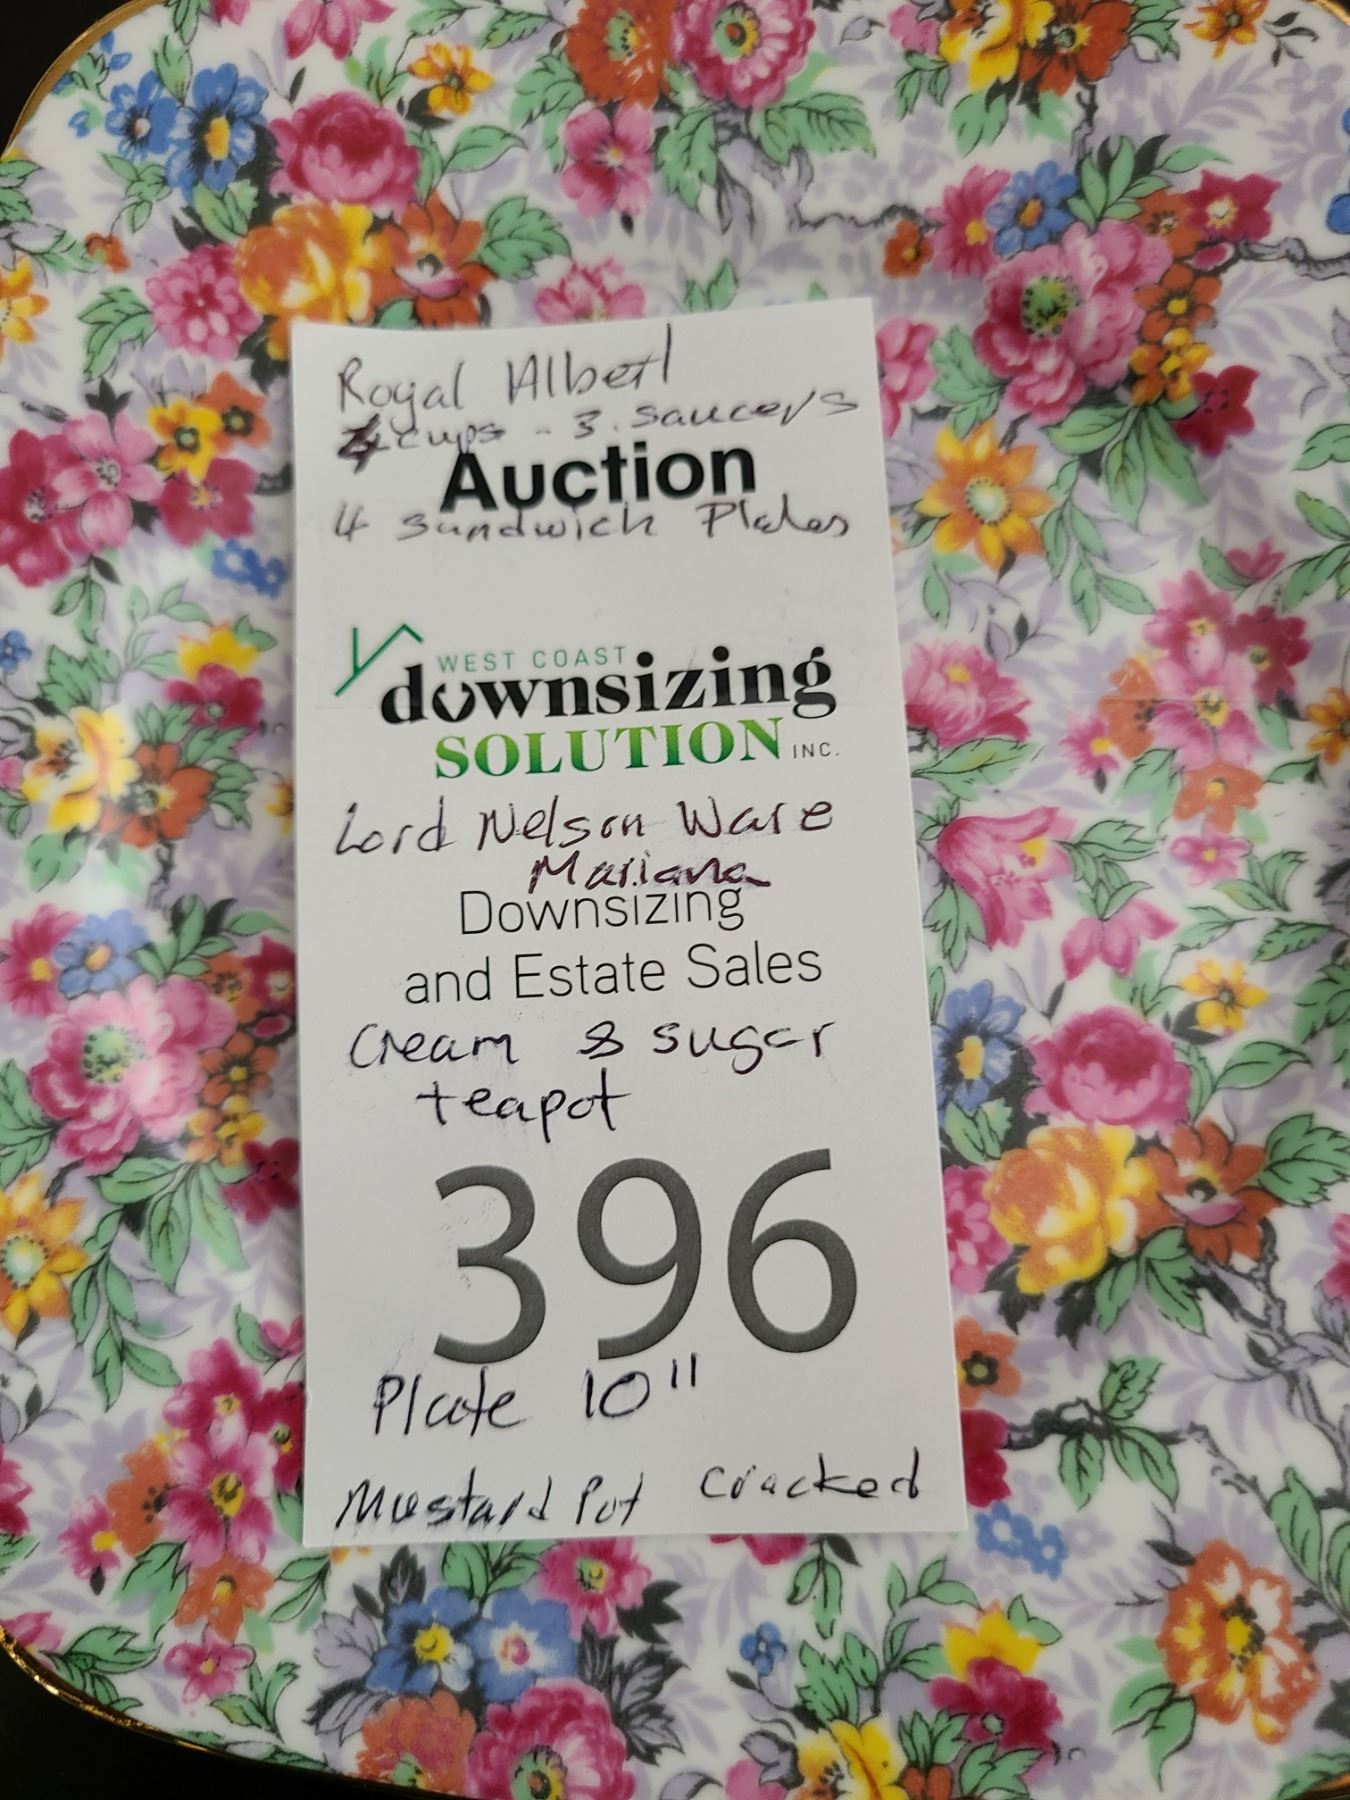 Royal Albert
4 cups - 3 saucers
Auction
4 sandwich Plates
WEST COAST
downsizing
SOLUTION INC.
Lord Nelson Ware
Mariana
Downsizing
and Estate Sales
Cream & sugar
teapot
396
Plate 10"
Mustard Pot Cracked